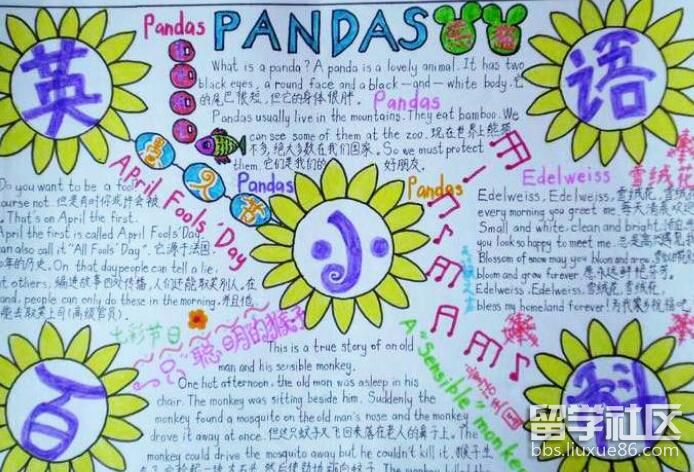 Pandas
PANDAS
英
语
What is a panda? A panda is a lovely animal. It has two
black eyes, a round face and a black-and-white body. 它
的尾巴很短, 但它的身体很胖. Pandas
Pandas usually live in the mountains. They eat bamboo. We
can see some of them at the zoo. 现在世界上熊猫
不多, 绝大多数在我们国家. So we must protect
them. 它们是我们的 好朋友.
Pandas
Pandas
April Fools' Day
Do you want to be a fool
course not. 但是有时你或许会被
. That's on April the first.
April the first is called April Fools' Day.
can also call it "All Fools' Day". 它源于法国.
年的历史. On that day people can tell a lie
others. 编造故事四处传播, 人们还能取笑别人. 在
and, people can only do these in the morning, 并且他
能去取笑上司(高级官员).
Edelweiss 雪绒花
Edelweiss, Edelweiss, 雪绒花, 雪绒花
every morning you greet me. 每天清晨欢迎
Small and white, clean and bright,
you look so happy to meet me. 总是高兴遇见
Blossom of snow may you bloom and grow,
bloom and grow forever.
Edelweiss, Edelweiss, 雪绒花, 雪绒花,
bless my homeland forever! 为我家乡祝福吧
小
七彩节日
聪明的猴子
A "Sensible" monkey
This is a true story of an old
man and his sensible monkey.
One hot afternoon, the old man was asleep in his
chair. The monkey was sitting beside him. Suddenly the
monkey found a mosquito on the old man's nose and the monkey
drove it away at once. 但这只蚊子又飞回来落在老人的鼻子上. The
monkey could drive the mosquito away but he couldn't kill it. 猴子生
百
科
留学社区
bbs.liuxue86.com